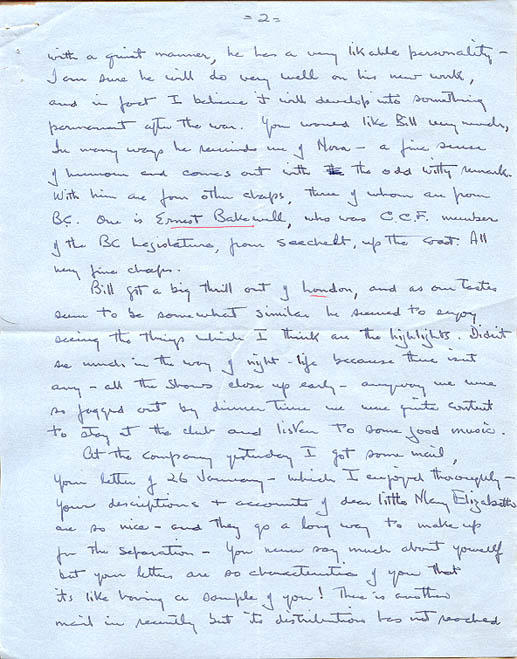 = 2 =
with a quiet manner, he has a very likable personality –
I am sure he will do very well on his new work,
and in fact I believe it will develop into something
permanent after the war. You would like Bill very much,
In many ways he reminds me of Nora – a fine sense
of humour and comes out with the odd witty remark.
With him are four other chaps, three of whom are from
BC. One is Ernest Bakewell, who was C.C.F. member
of the BC Legislature, from Seechelt, up the coast. All
very fine chaps.
Bill got a big thrill out of London, and as our tastes
seem to be somewhat similar he seemed to enjoy
seeing the things which I think are the highlights. Didn't
see much in the way of night-life because there isn't
any – all the shows close up early – anyway we were
so fagged out by dinner time we were quite content
to stay at the club and listen to some good music.
At the company yesterday I got some mail,
your letter of 26 January – which I enjoyed thoroughly –
Your descriptions + accounts of dear little Mary Elizabeth
are so nice – and they go a long way to make up
for the separation – You never say much about yourself
but your letters are so characteristic of you that
its like having a sample of you! There is another
mail in recently but its distribution has not reached